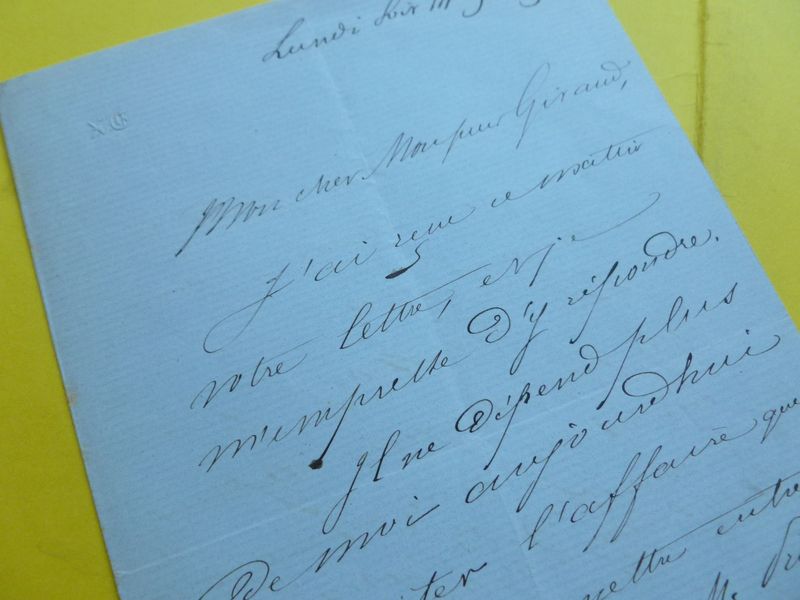 Lundi soir
NG
Mon cher Monsieur Giraud,
J'ai reçu ce matin
votre lettre, et je
m'empresse d'y répondre.
Il ne dépend plus
de moi aujourd'hui
l'affaire que
mettre entre